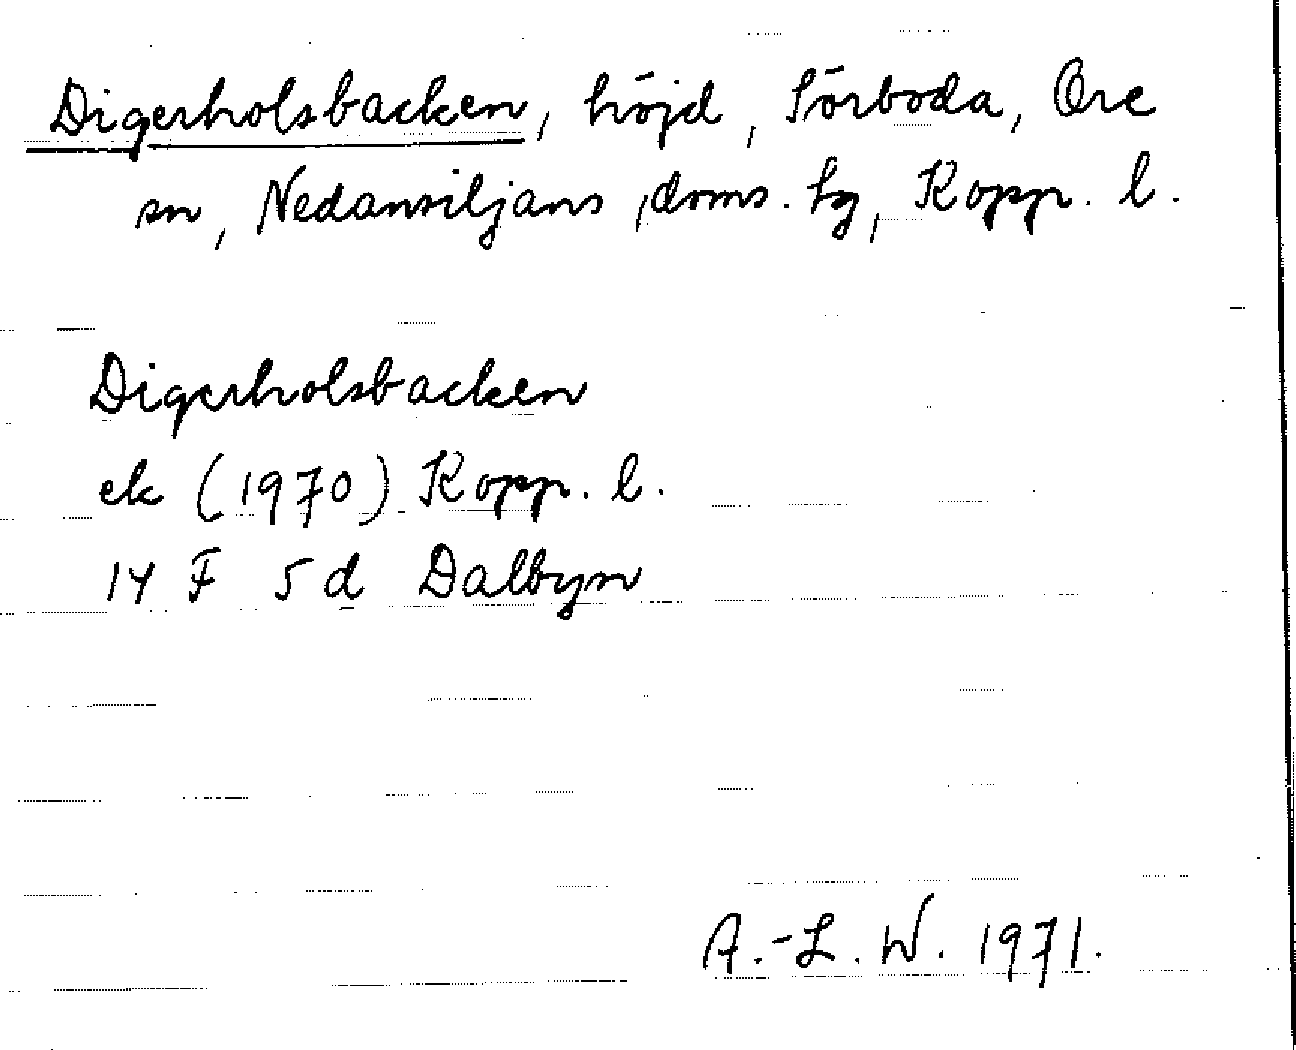 Digerholsbacken, höjd, Sörboda, Ore
sn, Nedansiljans doms. hg, Kopp. l.
Digerholsbacken
ek (1970) Kopp. l.
14 F 5 d Dalbyn
A.-L. W. 1971.